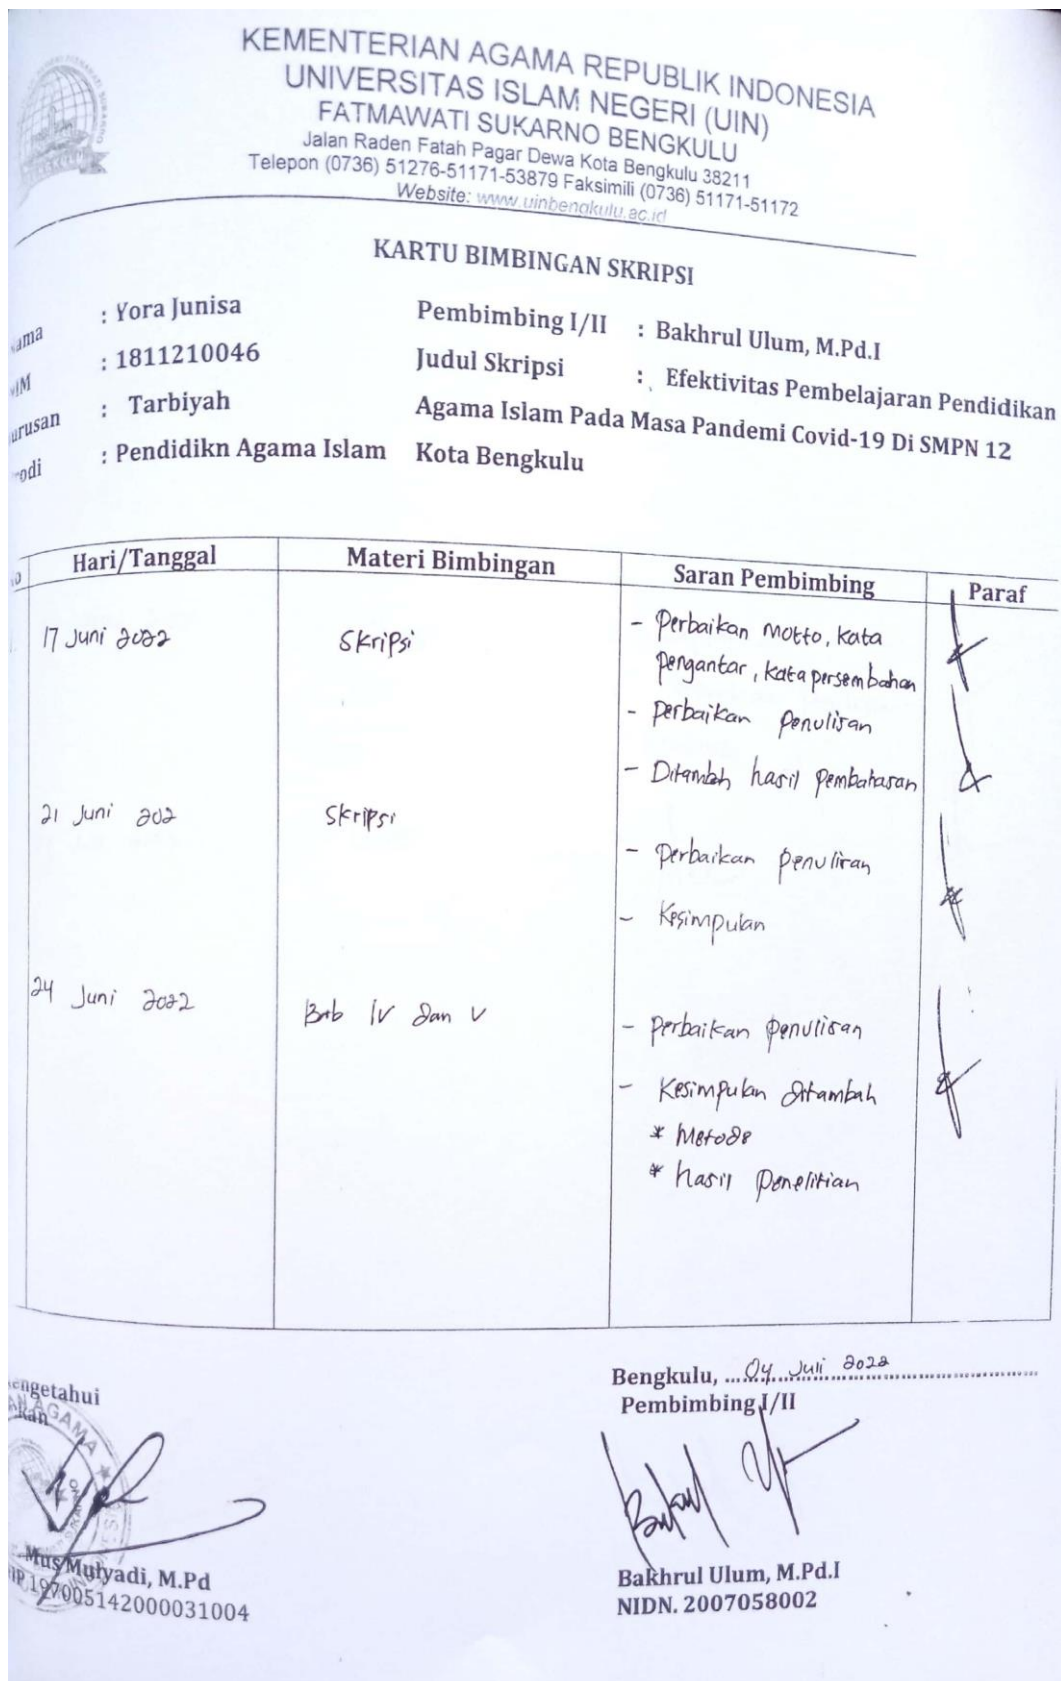 KEMENTERIAN AGAMA REPUBLIK INDONESIA
UNIVERSITAS ISLAM NEGERI (UIN)
FATMAWATI SUKARNO BENGKULU
Jalan Raden Fatah Pagar Dewa Kota Bengkulu 38211
Telepon (0736) 51276-51171-53879 Faksimili (0736) 51171-51172
Website: www.uinbengkulu.ac.id
KARTU BIMBINGAN SKRIPSI
ama : Yora Junisa
IM : 1811210046
urusan : Tarbiyah
odi : Pendidikn Agama Islam
Pembimbing I/II : Bakhrul Ulum, M.Pd.I
Judul Skripsi : Efektivitas Pembelajaran Pendidikan
Agama Islam Pada Masa Pandemi Covid-19 Di SMPN 12
Kota Bengkulu
Hari/Tanggal Materi Bimbingan Saran Pembimbing Paraf
17 Juni 2022 Skripsi - Perbaikan Motto, kata
pengantar, kata persembahan
- perbaikan penulisan
- Ditambah hasil pembahasan
21 Juni 202 Skripsi
- perbaikan penulisan
- Kesimpulan
24 Juni 2022 Bab IV dan V
- perbaikan penulisan
- Kesimpulan ditambah
* Metode
* hasil penelitian
Bengkulu, ...04 Juli 2022
Pembimbing I/II
engetahui
kan
Mus Mulyadi, M.Pd
IP 197005142000031004
Bakhrul Ulum, M.Pd.I
NIDN. 2007058002